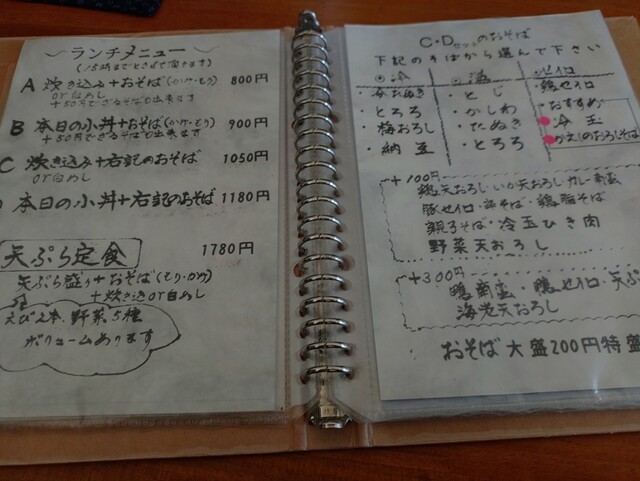 ランチメニュー
(15時までとさせて頂きます)
A 炊き込み+おそば(かけ・もり) 800円
or白めし
+50円でざるそばも出来ます
B 本日の小丼+おそば(かけ・もり) 900円
+50円でざるそばも出来ます
C 炊き込み+右記のおそば 1050円
or白めし
本日の小丼+右記のおそば 1180円
天ぷら定食 1780円
天ぷら盛り+おそば(もり・かけ)
+炊き込or白めし
えび2本、野菜5種
ボリュームあります
C・Dセットのおそば
下記のそばから選んで下さい
冷 温 セイロ
・冷たぬき ・とじ ・鶏セイロ
・とろろ ・かしわ ・おすすめ
・梅おろし ・たぬき 冷玉
・納豆 ・とろろ かえしのおろしそば
+100円
鶏天おろし・いか天おろし カレー南蛮
豚セイロ
親子そば・冷玉ひき肉
野菜天おろし
+300円
鴨南蛮・鴨セイロ・天ぷ
海老天おろし
おそば大盛200円特盛